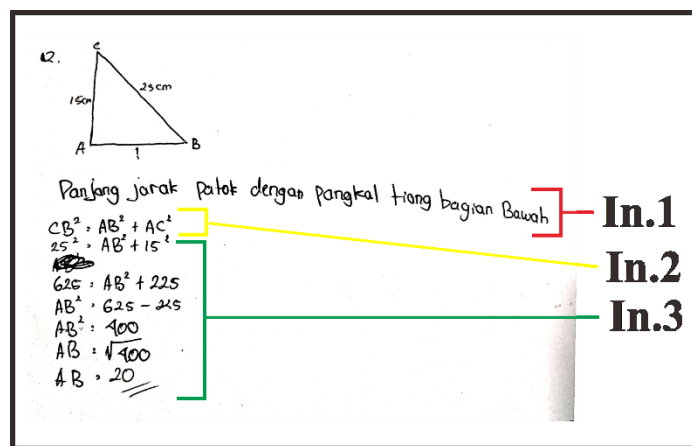 12.
C
15cm
25cm
A
B
?
Panjang jarak patok dengan pangkal tiang bagian Bawah
In.1
CB² = AB² + AC²
In.2
25² = AB² + 15²
625 = AB² + 225
AB² = 625 - 225
In.3
AB² = 400
AB = √400
AB = 20